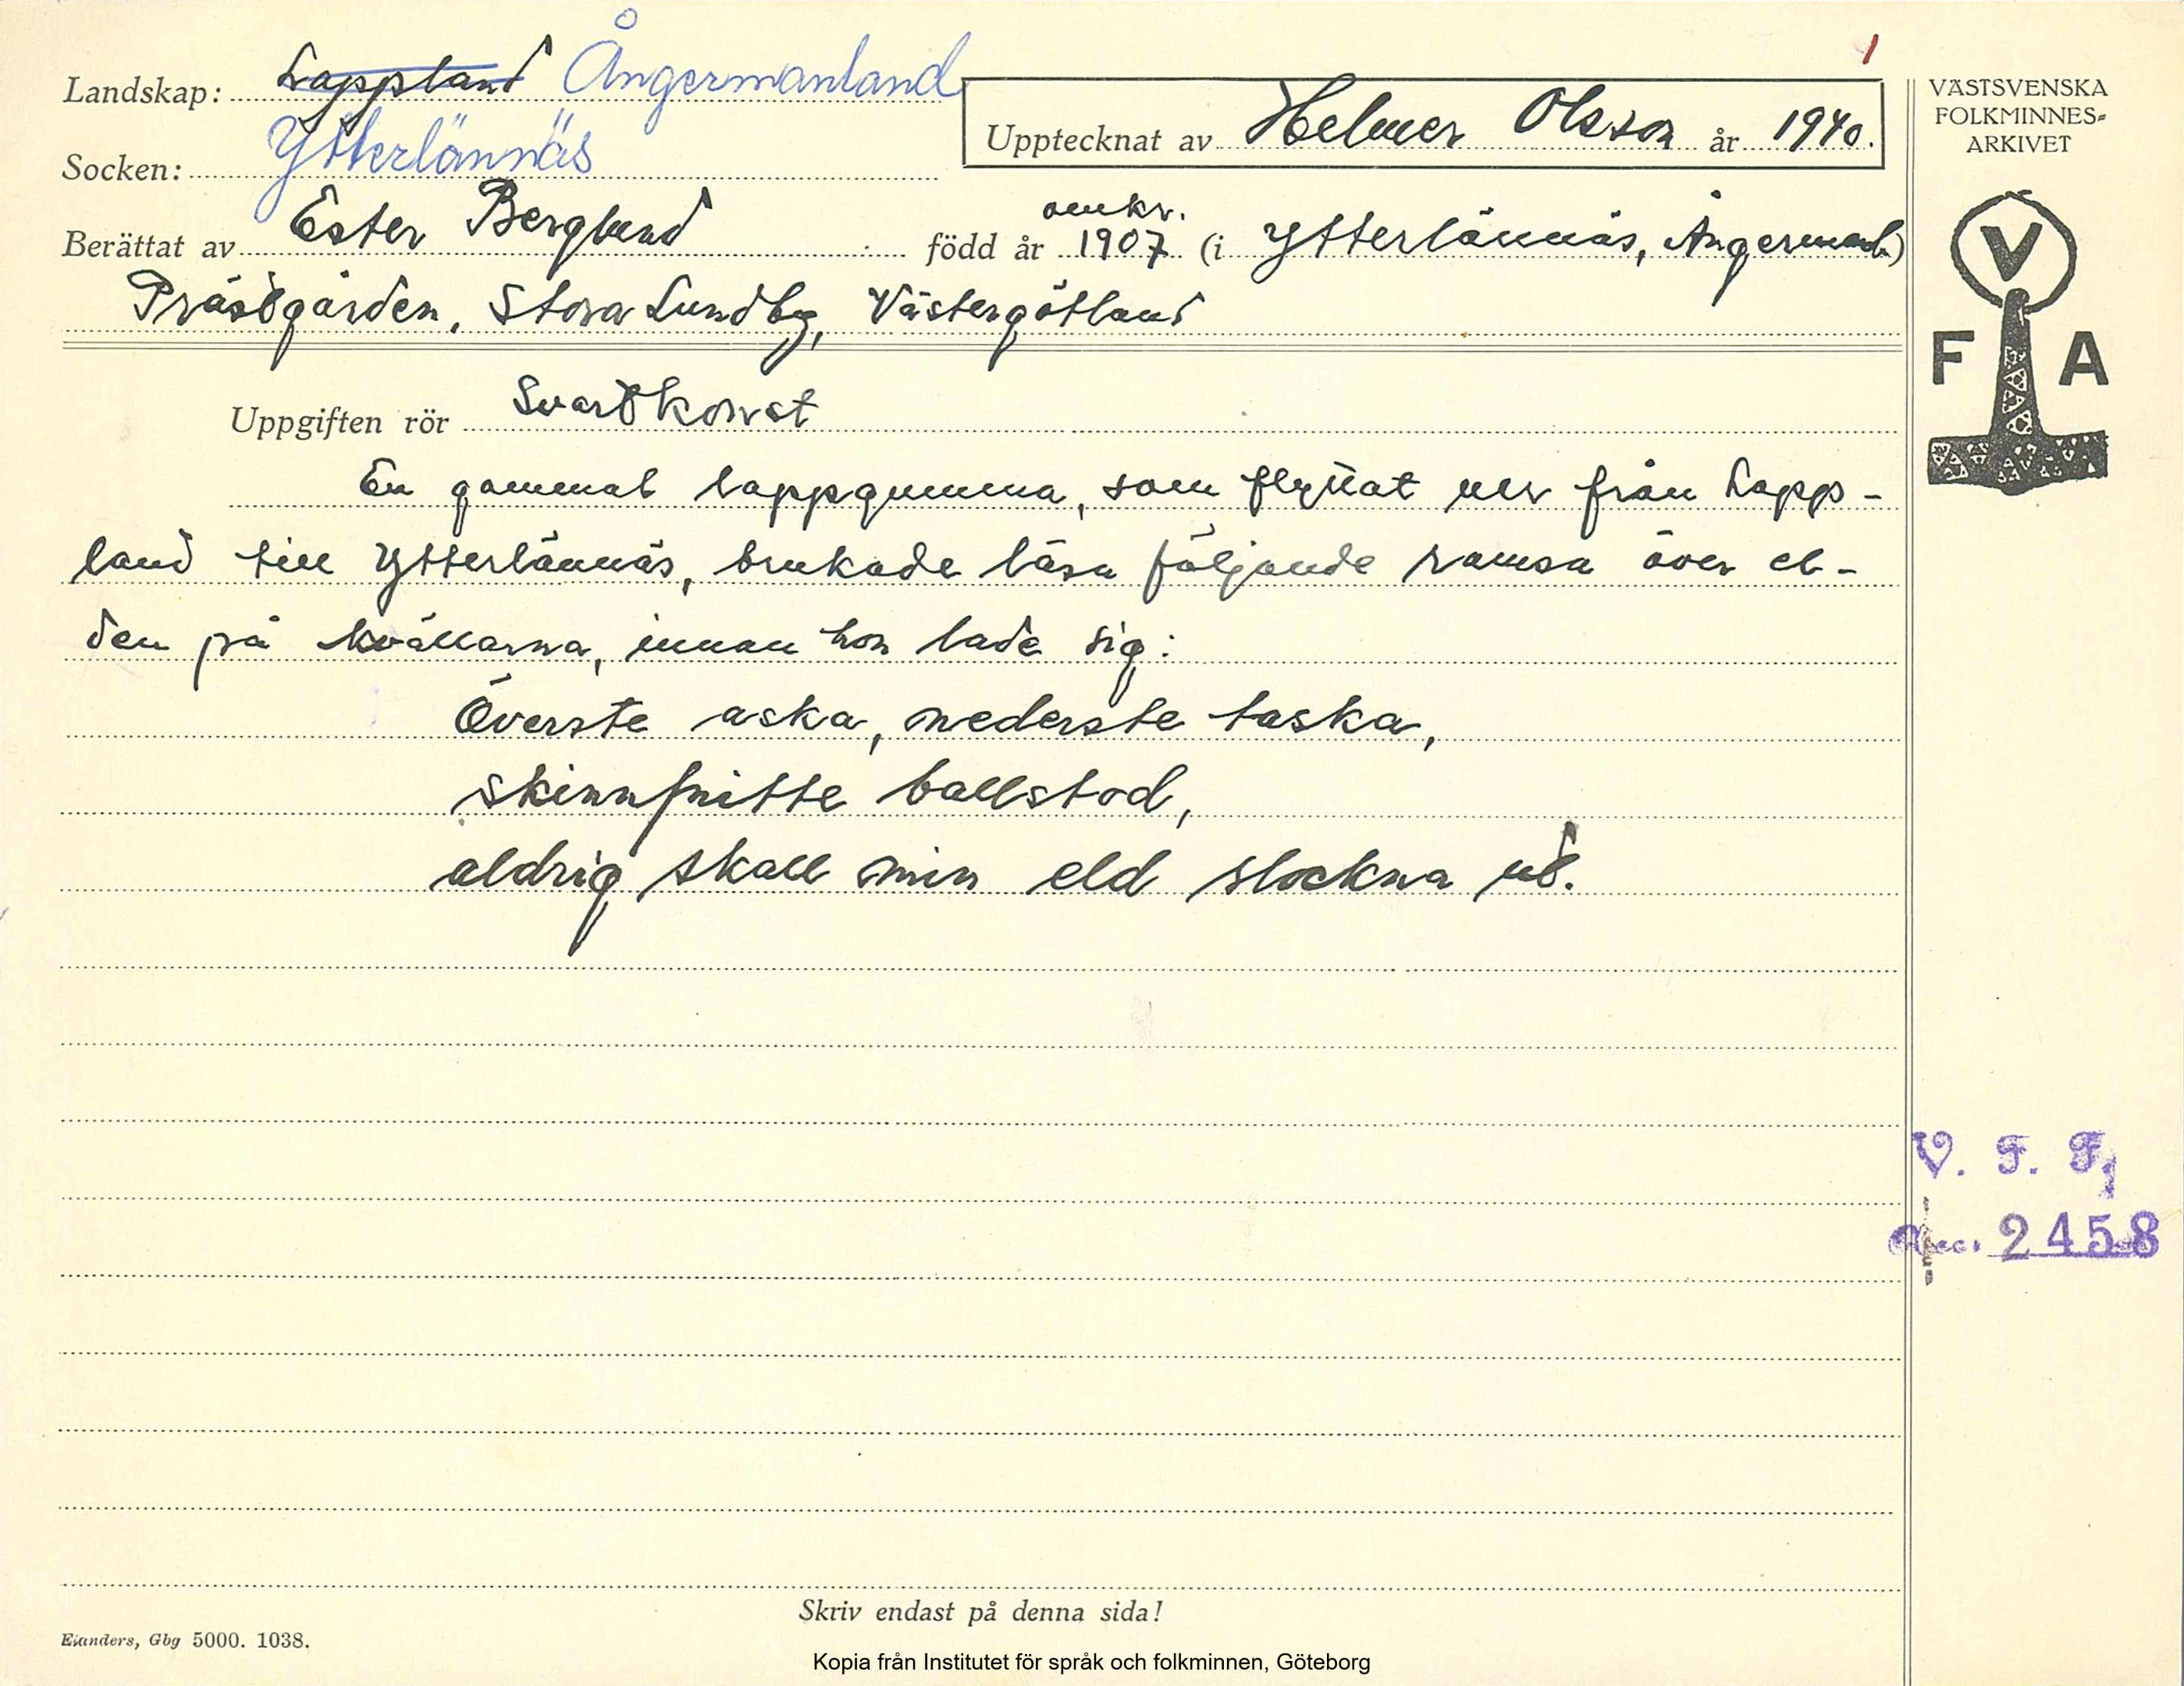 1
Landskap: Lappland Ångermanland
Socken: Ytterlännäs
Upptecknat av Helmer Olsson år 1940.
Berättat av Ester Berglund född år omkr. 1907 (i Ytterlännäs, Ångermanl.)
Prästgården, Stora Lundby, Västergötland
VÄSTSVENSKA
FOLKMINNES=
ARKIVET
V
F A
Uppgiften rör Svartkonst
En gammal lappgumma, som flyttat ner från Lapp-
land till Ytterlännäs, brukade läsa följande ramsa över el-
den på kvällarna, innan hon lade sig:
Överste aska, nederste taska,
skinnfnitte ballstod,
aldrig skall min eld slockna ut.
V. F. F.
Acc. 2458
Skriv endast på denna sida!
Elanders, Gbg 5000. 1038.
Kopia från Institutet för språk och folkminnen, Göteborg